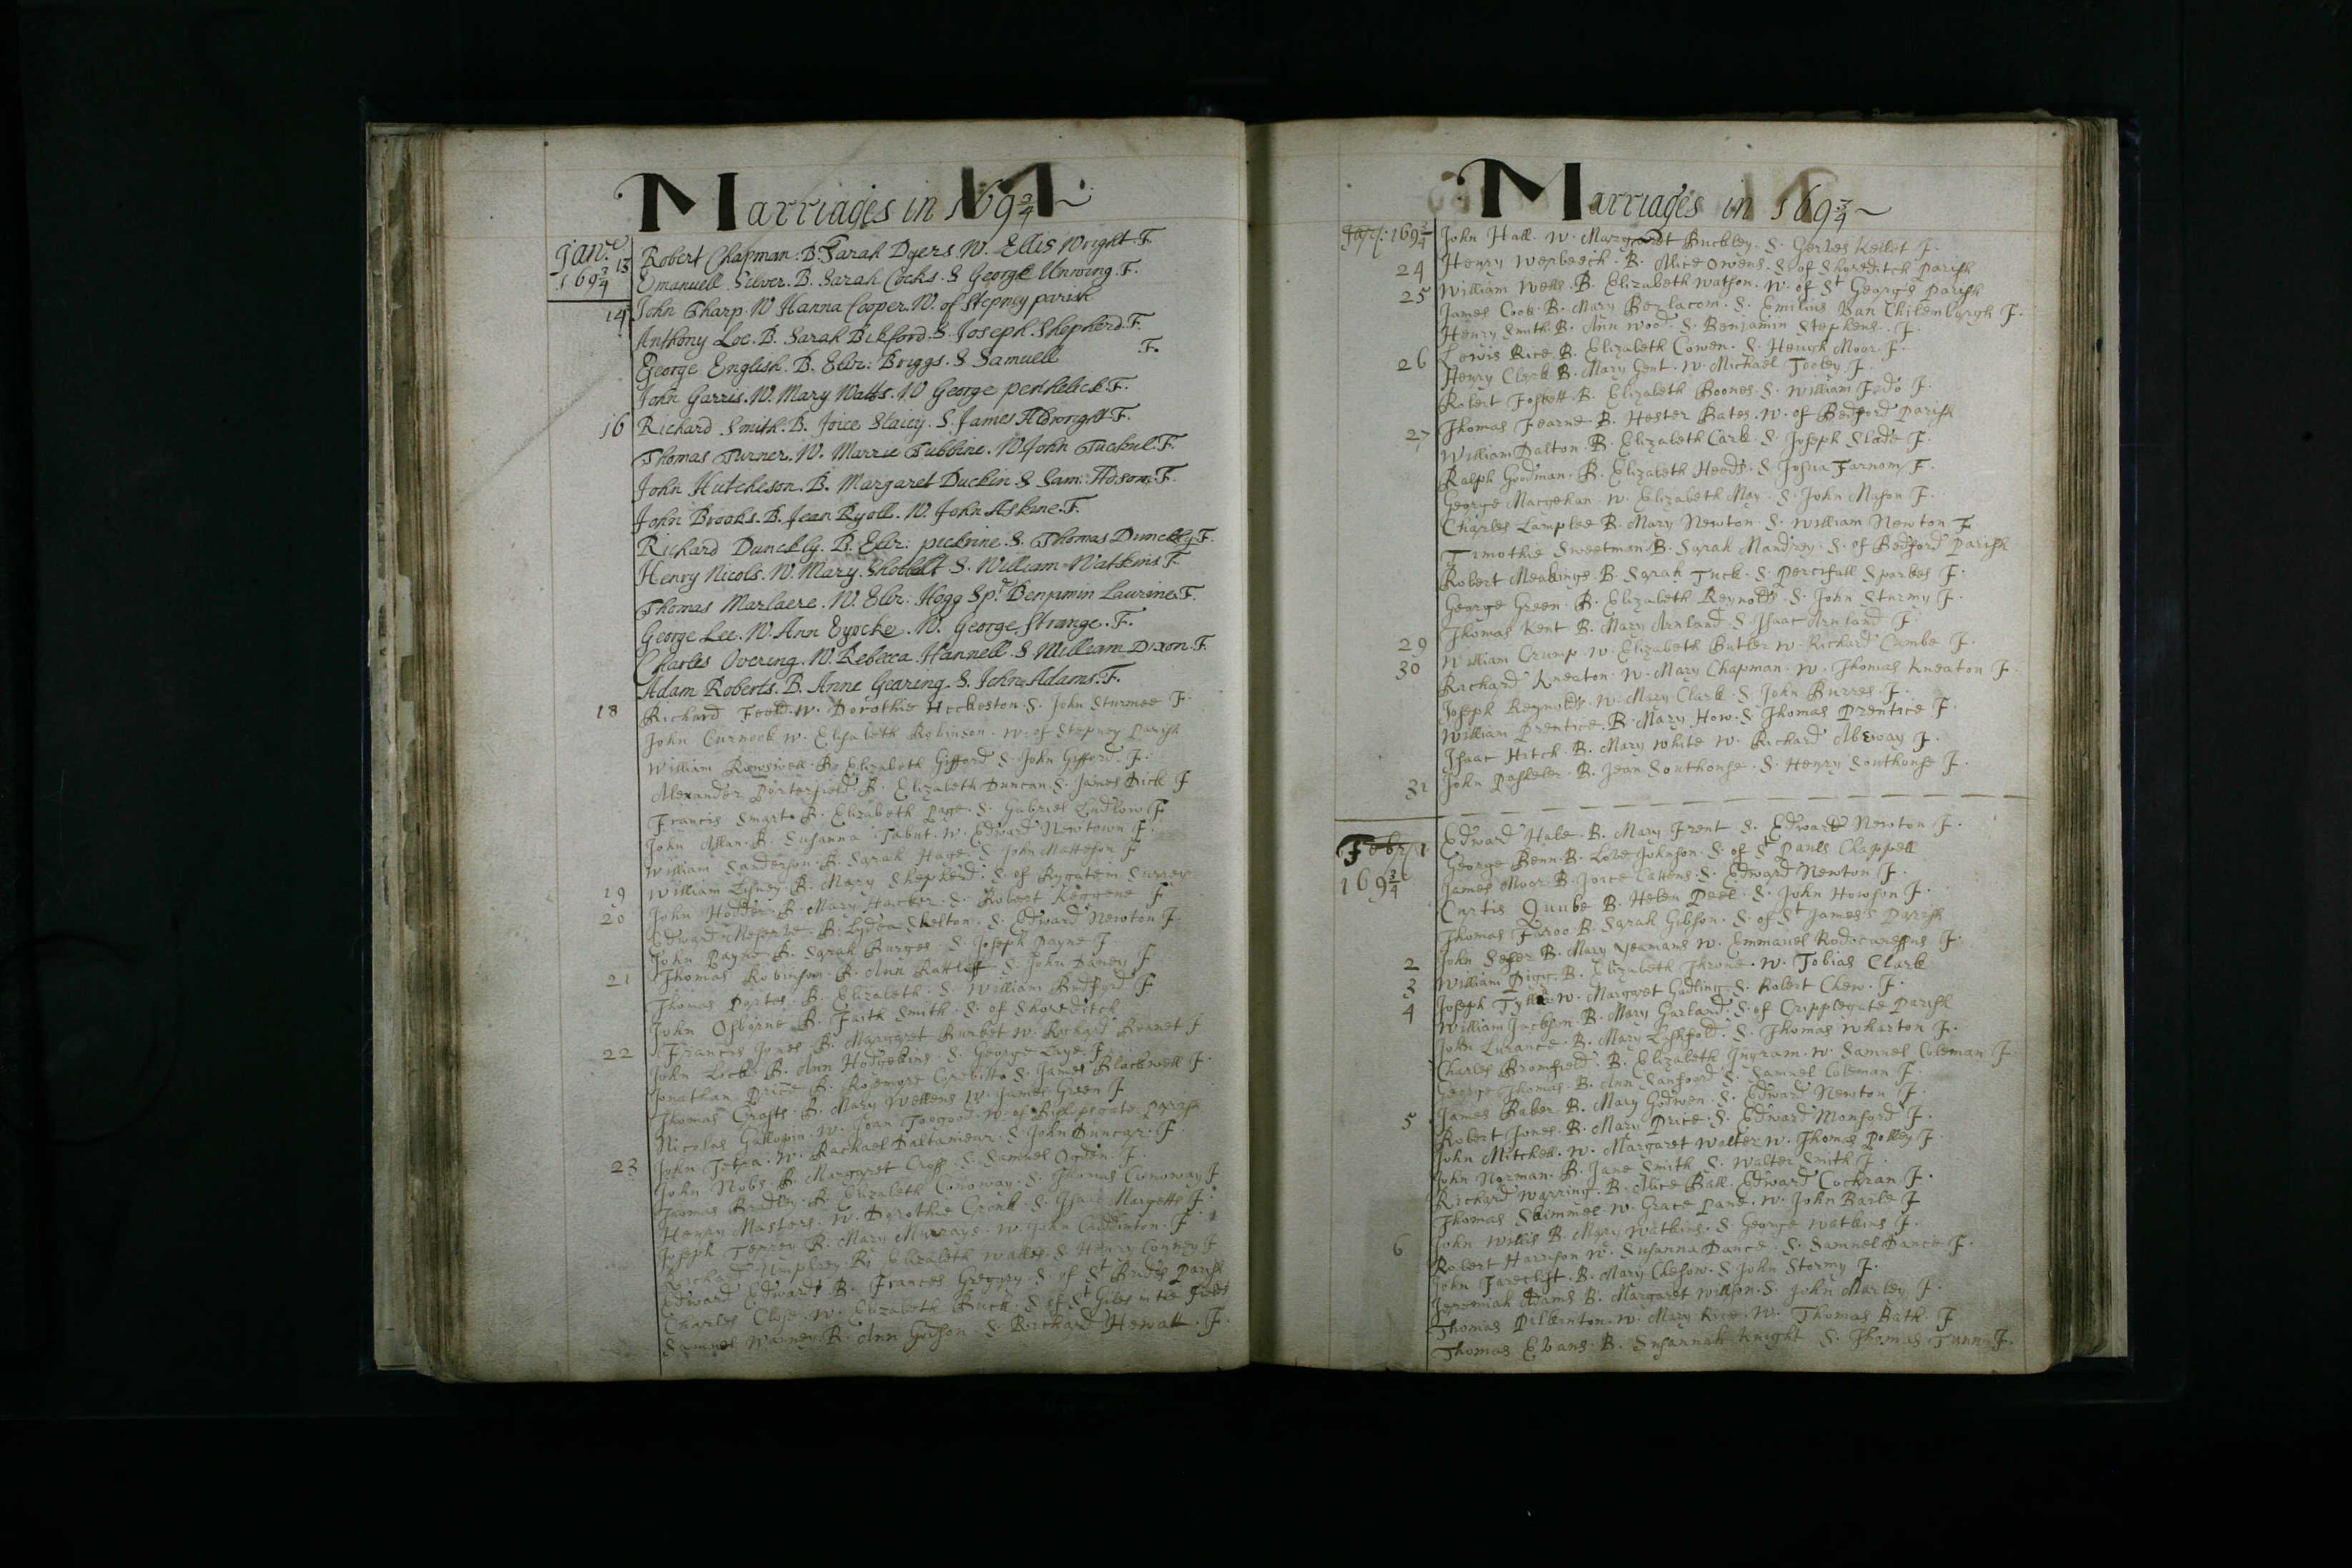 Marriages in 169¾
Jan:ry 169¾ 13 Robert Chapman. B. Sarah Dyers. W. Ellis Wright. F.
Emanuell Silver. B. Sarah Cocks. S George Unwing. F.
14 John Tharp. W Hanna Cooper. W. of Stepney parish
Anthony Loe. B. Sarah Bickford. S. Joseph Shepherd. F.
George English. B. Eliz: Briggs. S Samuell F.
John Garris. W. Mary Watts. W George penhelick. F.
16 Richard Smith. B. Joice Stacey. S. James F.
Thomas Turner. W. Marrie Tubbine. W John F.
John Hutcheson. B. Margaret Duckin S Sam: F.
John Brooks. B. Jean Ryoll. W. John Askine. F.
Richard Dunckly. B. Eliz: S. Thomas Dunckly. F.
Henry Nicols. W. Mary S. William Watkins F.
Thomas Marlaere. W. Eliz: Hogg Sp.r Benjamin F.
George Lee. W. Ann Eyocke. W. George Strange. F.
Charles Overing. W. Rebecca Hannell. S William Dixon. F
Adam Roberts. B. Anne Gearing. S. John Adams. F.
18 Richard Feeld. W. Dorothie S. John Sturmee F.
John Curnock W. Elisabeth Robinson. W. of Stepney Parish
William B. Elizabeth Gifford S. John Gifford. F.
Alexander Porterfield B. Elizabeth Duncan. S. James Dick F
Francis Smart. B. Elizabeth Page. S. Gabriel Ludlow. F
John Allan. B. Susanna Tabut. W. Edward Newtown F.
William Sanderson. B. Sarah Hage. S John Matteson F
19 William B. Mary Shepherd. S. of Rygate in Surrey
20 John Hodder. B. Mary Hacker. S. Robert Keggene F
Edward B. Lydea Skelton. S. Edward Newton F.
John Payne. B. Sarah Burges. S. Joseph Payne F.
21 Thomas Robinson. B. Ann Rattliff. S. John F
Thomas Portes. B. Elizabeth. S. William Bedford F
John Osborne B. Faith Smith. S. of Shoreditch
22 Francis Jones. B. Margaret Burket W. Richard Bennet F
John Lock. B. Ann Hodgekins. S. George Laye. F.
Jonathan Price B. Rosemore S. James Blackwell F.
Thomas Crafts. B. Mary Wellens W. James Green F
Nicolas Gallopin. W. Joan Toogood. W. of Bishopsgate Parish
John W. Rachael S. John Duncar. F.
23 John Nobs. B. Margaret Croff. S. Samuel Ogden. F.
Thomas Bradley. B. Elizabeth Conoway. S. Thomas Conoway F
Henry Masters. W. Dorothie Cronk. S. Isaac Margetts F.
Joseph Tenrey B. Mary Murraye. W. John Caddinton. F
Richard Umphrey. B. Elizabeth Walles. S. Henry F
Edward Edwards. B. Frances Gregory. S. of St Brides Parish
Charles Close. W. Elizabeth Buck. S of St Giles in the Fields
Samuel Warney. B. Ann Godson. S. Richard Hewatt. F.
Marriages in 169¾
Jan: 169¾ John Hall. W. Margaret Buckley. S. Gerves Kellet F.
24 Henry Werbeech. B. Alice Owens. S of Shoreditch Parish
25 William Wells. B. Elizabeth Watson. W. of St Georg's Parish
James Cook. B. Mary Bezlacom. S. Emilius Van F.
Henry Smith B. Ann Wood. S. Benjamin Stephens. F.
26 Lewis Rice B. Elizabeth Cowen. S. Heugh Moor F.
Henry Clark B. Mary Gent. W. Michael Tooley F.
Robert Foskett B. Elizabeth Boones. S. William F.
27 Thomas Fearne B. Hester Bates. W. of Bedford Parish
William Dalton. B. Elizabeth Cark. S. Joseph Slade F.
Ralph Goodman. B. Elizabeth Heeds. S. Josua Farnom F.
George Macgehan. W. Elizabeth May. S. John Mason F.
Charles Lamplee B. Mary Newton. S. William Newton F
Timothie Sweetman. B. Sarah Mandrey. S. of Bedford Parish
Robert Meakings. B. Sarah Tuck. S. Percifall Sparkes F.
George Green. B. Elizabeth Reynolds. S. John Sturmy F.
Thomas Kent B. Mary Arnland S Isaac Arnland F
29 William Crump. W. Elizabeth Butler W. Richard Cumbe F.
30 Richard Kneaton. W. Mary Chapman. W. Thomas Kneaton F.
Joseph Reynolds. W. Mary Clark. S. John Burres. F.
William Prentice. B. Mary How. S Thomas Prentice F.
Isaac Hitch. B. Mary White W. Richard F.
31 John B. Jean Southouse. S. Henry Southouse F.
Feb:ry 1 169¾ Edward Hale. B. Mary Trent S. Edward Newton F.
George Benn. B. Love Johnson. S. of St Pauls Chappell
James Moor. B. Joice Cattens. S. Edward Newton F.
Curtis Quube B. Helen Peel. S. John Howson F.
Thomas Faroo B. Sarah Gibson. S. of St James's Parish
2 John Seger B. Mary Yeamans W. Emmanuel F.
3 William Pigg. B. Elizabeth Throne. W. Tobias Clark
4 Joseph W. Margaret Gadling. S. Robert Chew. F.
William Jackson. B. Mary Garland. S. of Cripplegate Parish
John Lurance. B. Mary Lashfold. S. Thomas Wharton F.
Charles Bromfield. B. Elizabeth Ingram. W. Samuel Coleman F.
George Thomas. B. Ann Sanfoord S. Samuel Coleman F.
James Baber B. Mary Godwen. S. Edward Newton F.
5 Robert Jones. B. Mary Price. S. Edward Monford F.
John Mitchell. W. Margaret Walter W. Thomas Polley F
John Norman. B. Jane Smith S. Walter Smith F.
Richard Warring. B. Alice Ball. Edward Cochran. F.
Thomas Skimmer W. Grace Pane. W. John Baile F
John Willis B. Mary Watkins. S. George Watkins F.
6 Robert Harrison W. Susanna Dance. S. Samuel Dance F.
John Fareclift. B. Mary Chesow. S John Stormy F.
Jeremiah Adams B. Margaret Willson. S. John Marley F.
Thomas Pilkinton. W. Mary Rice. W. Thomas Bath. F
Thomas Evans. B. Susannah Knight S. Thomas Tunn F.